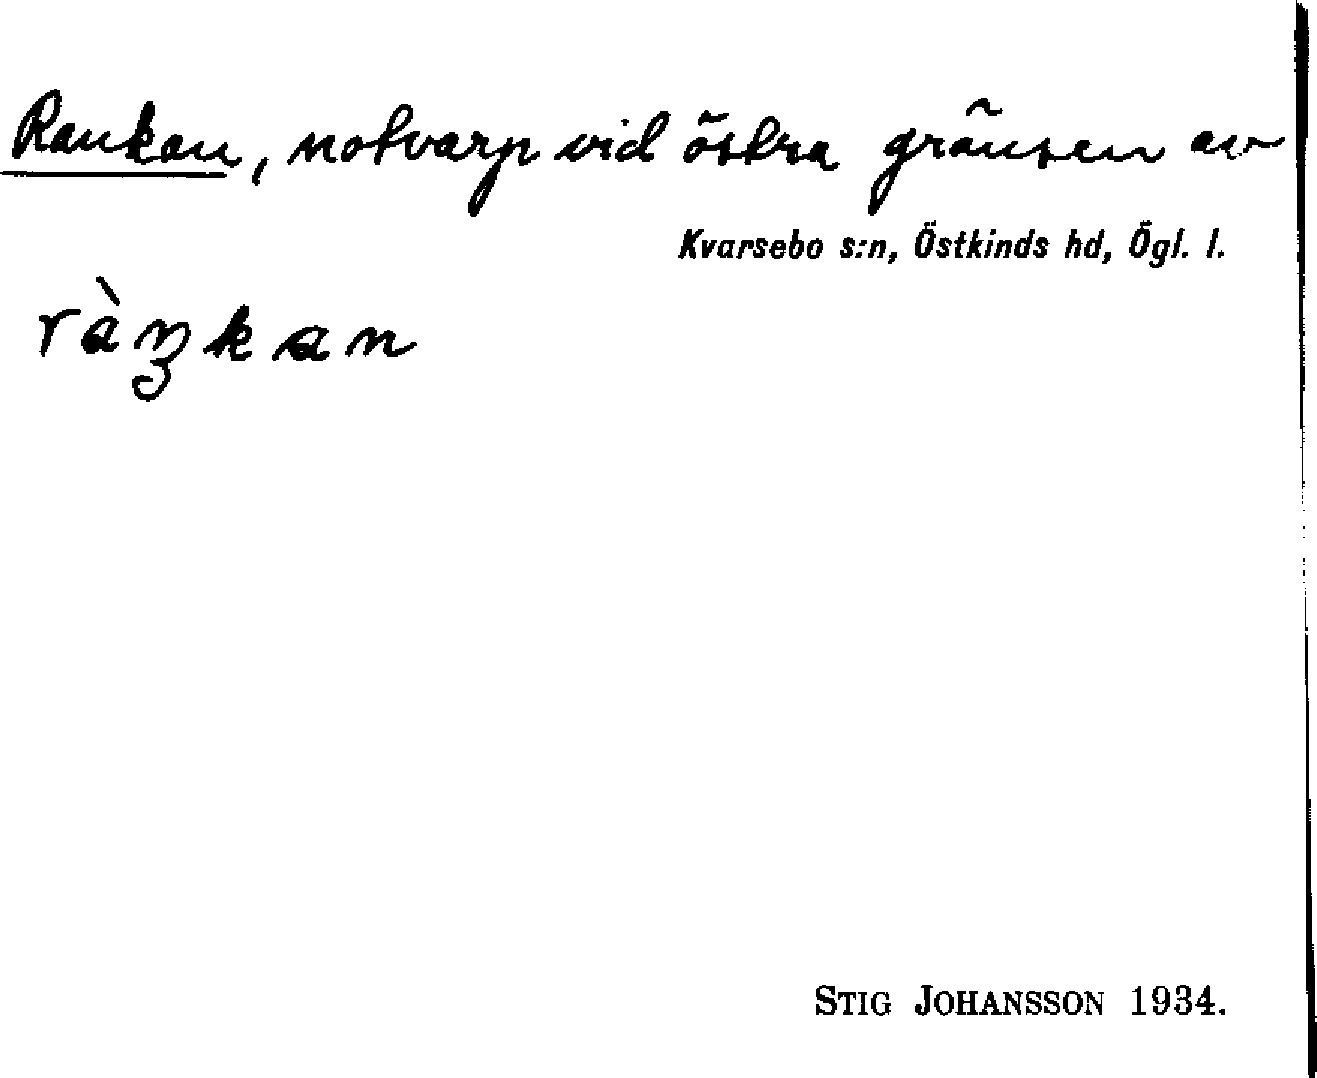 Rankan, notvarp vid östra gränsen av
Kvarsebo s:n, Östkinds hd, Ögl. l.
ràŋkan
STIG JOHANSSON 1934.